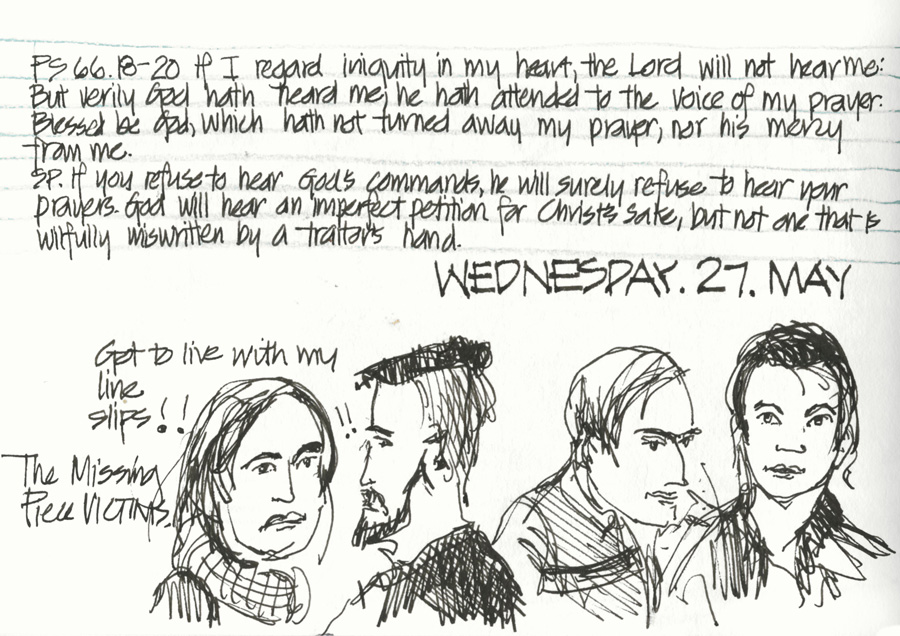 PS 66.18-20 If I regard iniquity in my heart, the Lord will not hear me:
But verily God hath heard me; he hath attended to the voice of my prayer.
Blessed be God, which hath not turned away my prayer, nor his mercy
from me.
SP. If you refuse to hear God's commands, he will surely refuse to hear your
prayers. God will hear an imperfect petition for Christ's sake, but not one that is
wilfully miswritten by a traitor's hand.
WEDNESDAY. 27. MAY
Got to live with my
line
slips!!
!!
The Missing
Piece VICTIMS.